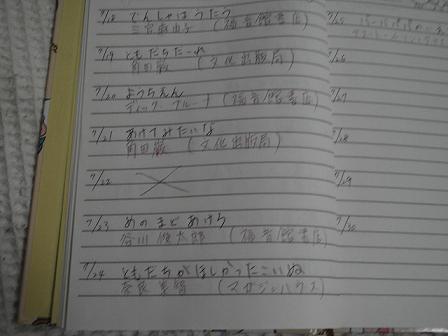 7/18 でんしゃはうたう
三宮麻由子 (福音館書店)
7/19 ともだちだーれ
角田巌 (文化出版局)
7/20 ようちえん
ディック・ブルーナ (福音館書店)
7/21 あけてみたいな
角田巌 (文化出版局)
7/22
7/23 めのまどあけろ
谷川俊太郎 (福音館書店)
7/24 ともだちがほしかったこいぬ
奈良美智 (マガジンハウス)
7/25
7/26
7/27
7/28
7/29
7/30